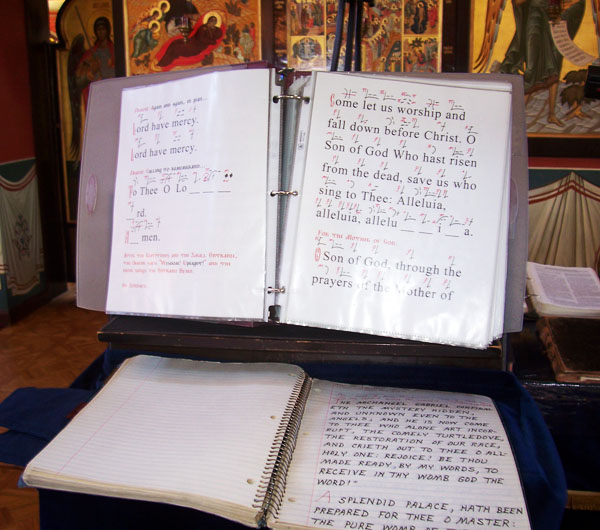 Lord have mercy.
Lord have mercy.
To Thee O Lo _ _ _
_ rd.
A _ men.
After the Exclamation and the Small Entrance,
the Deacon says "Wisdom! Upright!" and
the Entrance Hymn:
Come let us worship and
fall down before Christ. O
Son of God Who hast risen
from the dead, save us who
sing to Thee: Alleluia,
alleluia, allelu _ _ i _ a.
For the Mother of God:
O Son of God, through the
prayers of the Mother of
THE ARCHANGEL GABRIEL CONFIRM-
ETH THE MYSTERY HIDDEN,
AND UNKNOWN EVEN TO THE
ANGELS; AND HE IS NOW COME
TO THEE WHO ALONE ART INCOR-
RUPT, THE COMELY TURTLEDOVE,
THE RESTORATION OF OUR RACE,
AND CRIETH OUT TO THEE O ALL-
HOLY ONE: REJOICE! BE THOU
MADE READY, BY MY WORDS, TO
RECEIVE IN THY WOMB GOD THE
WORD!"
A SPLENDID PALACE, HATH BEEN
PREPARED FOR THEE O MASTER:
THE PURE WOMB OF